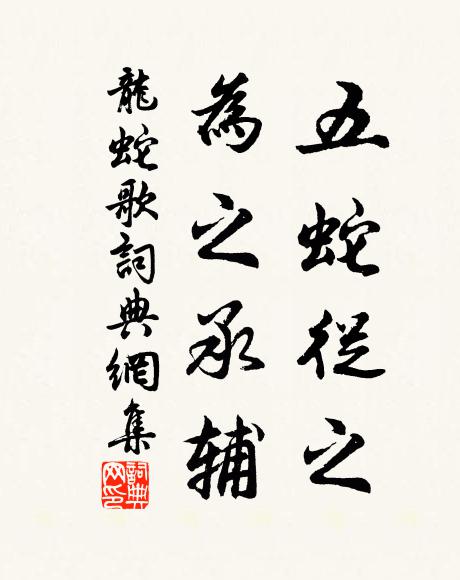 五蛇從之
為之承輔
龍蛇歌詞典網集
詞典网印